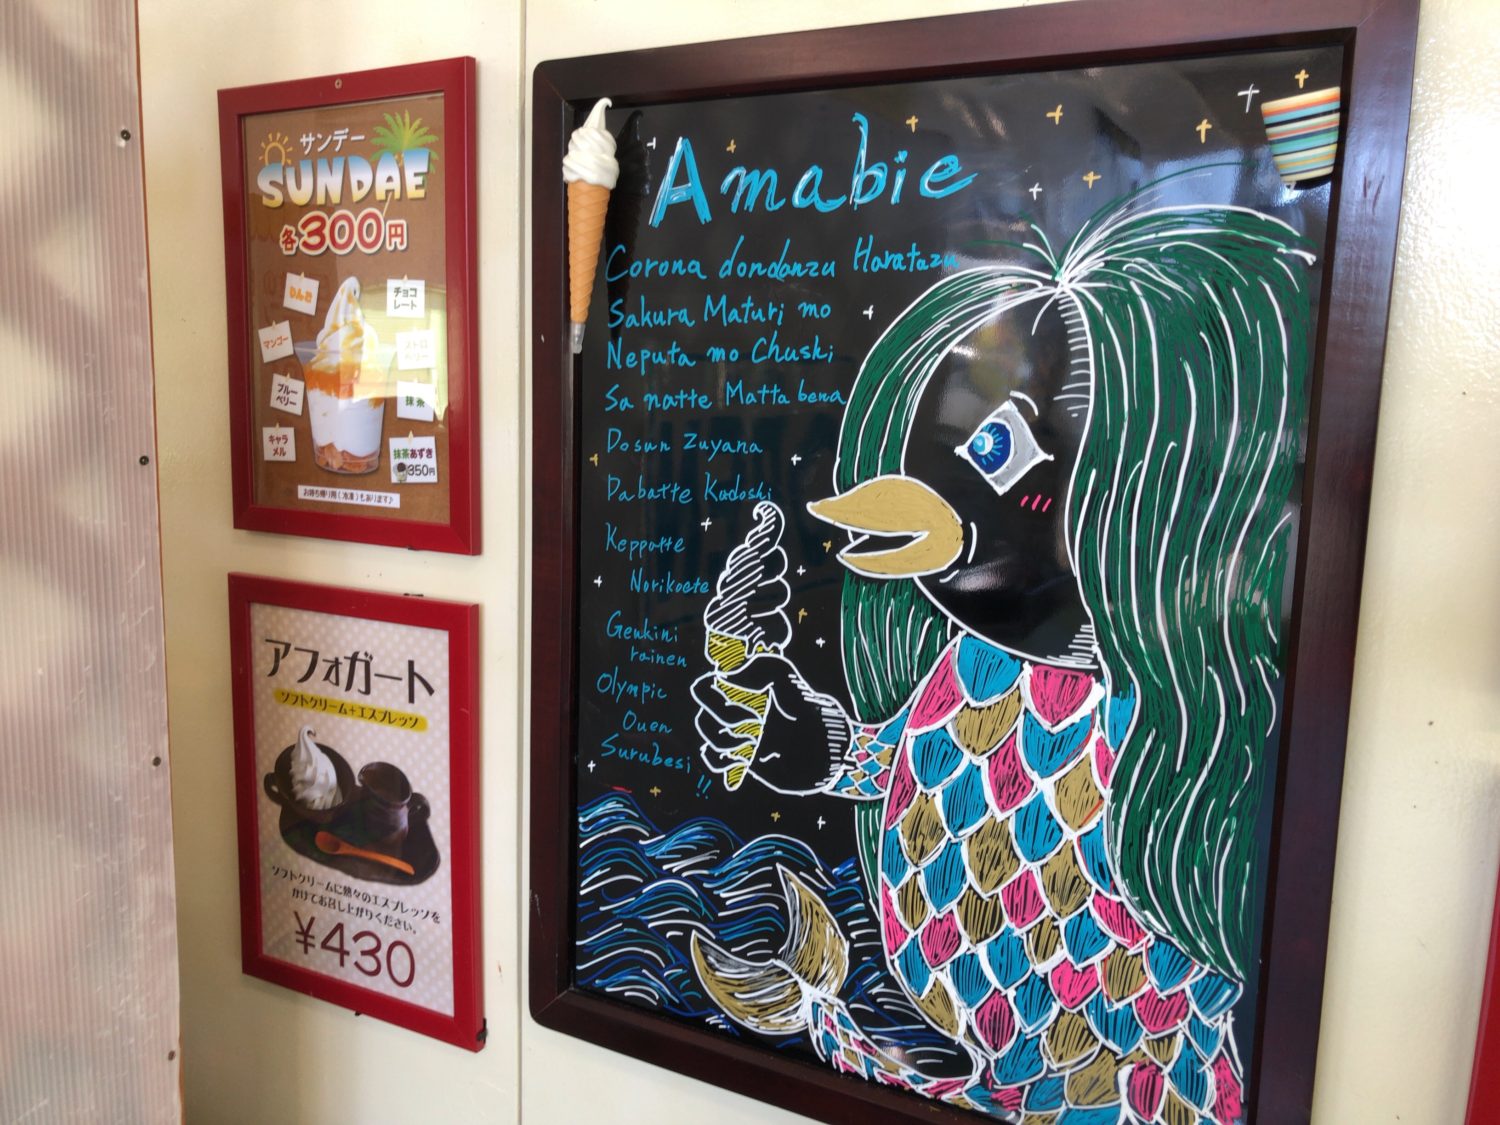 サンデー
SUNDAE
各300円
りんご
チョコレート
マンゴー
ストロベリー
ブルーベリー
抹茶
キャラメル
抹茶あずき
350円
お持ち帰り用(冷凍)もあります♪
アフォガート
ソフトクリーム+エスプレッソ
ソフトクリームに熱々のエスプレッソを
かけてお召し上がりください。
¥430
Amabie
Corona dondanzu Haratazu
Sakura Maturi mo
Neputa mo Chuski
Sa natte Matta bena
Dosun Zuyana
Dabatte Kadoshi
Keppatte
Norikoete
Genkini
rainen
Olympic
Ouen
Surubesi !!